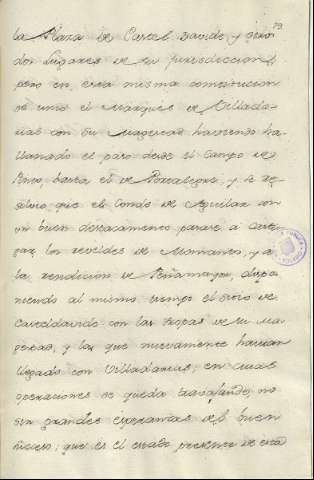 79
la Plaza de Castel Davide, y otros
dos lugares de su jurisdiccion,
pero en esta misma constitucion
se unio el Marques de Villada-
rias con Su Magestad haviendo ha-
llanado el paso desde el Campo de
hasta el de Portalegre, y se re-
solvio que el Conde de Aguilar con
un buen destacamento pasase a casti-
gar los reveldes de Monsanto, y a
la rendicion de Peñamayor, dispo-
niendo al mismo tiempo el sitio de
Casteldavide con las tropas de su Ma-
gestad, y las que nuevamente havian
llegado con Villadarias, en cuias
operaciones se queda travajando, no
sin grandes esperanzas del buen
suceso; que es el estado presente de esta